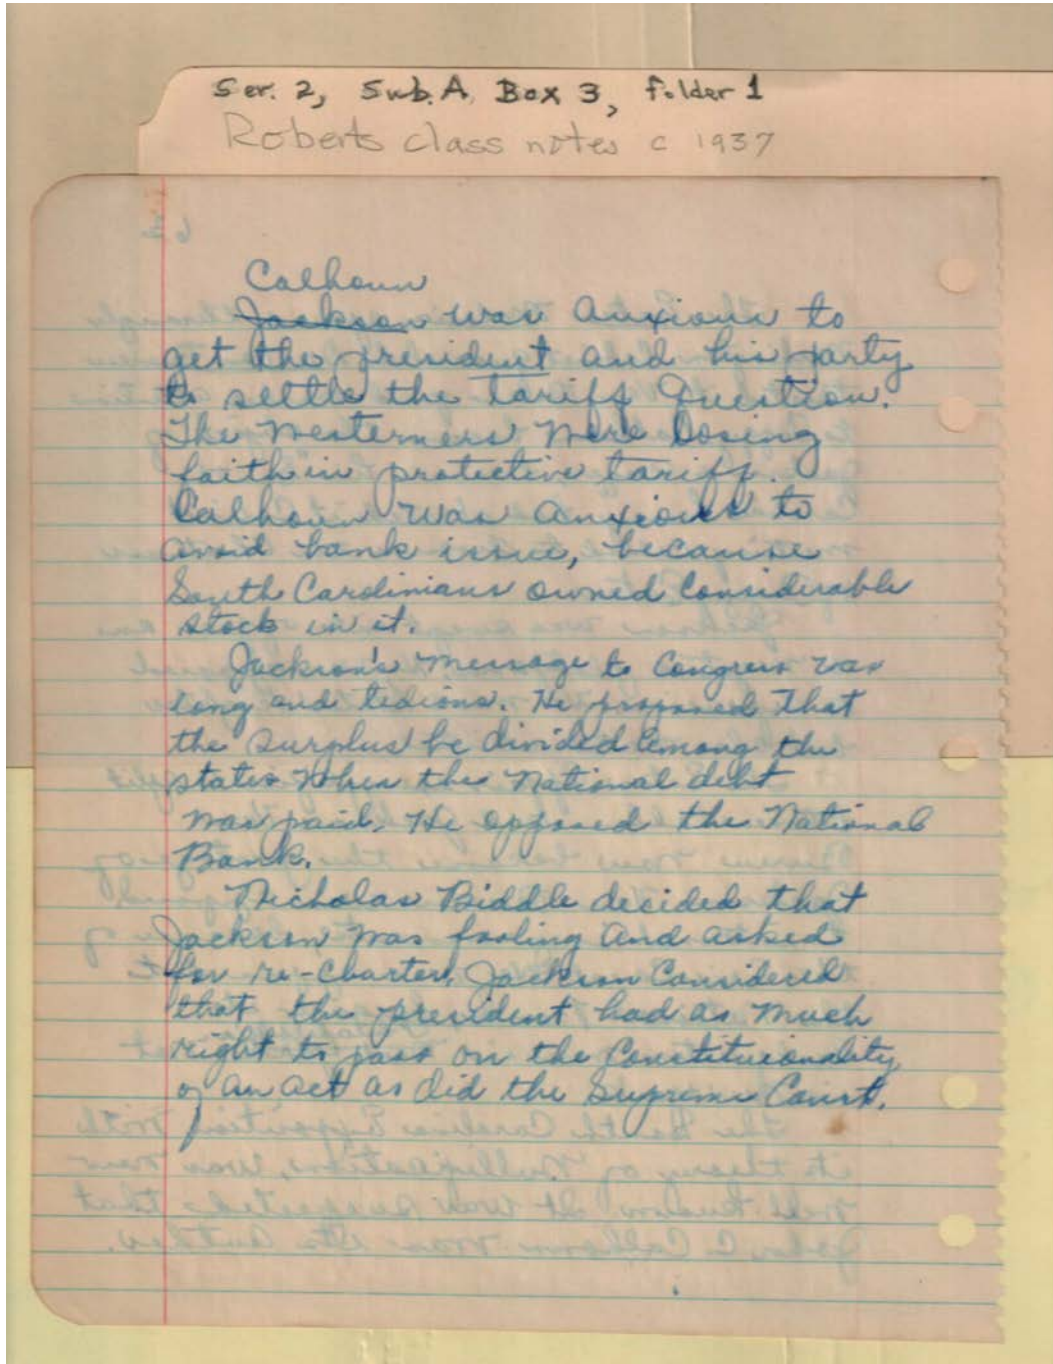 Ser. 2, Sub. A, Box 3, folder 1
Roberts class notes c 1937
Calhoun
Jackson was anxious to
get the president and his party
to settle the tariff Question.
The Westerners were losing
faith in protective tariff.
Calhoun was anxious to
avoid bank issue, because
South Carolinians owned Considerable
stock in it.
Jackson's message to Congress was
long and tedious. He proposed that
the surplus be divided among the
states when the national debt
was paid. He opposed the National
Bank.
Nicholas Biddle decided that
Jackson was fooling and asked
for re-charter. Jackson Considered
that the president had as much
right to pass on the Constituionality
of an act as did the Supreme Court.